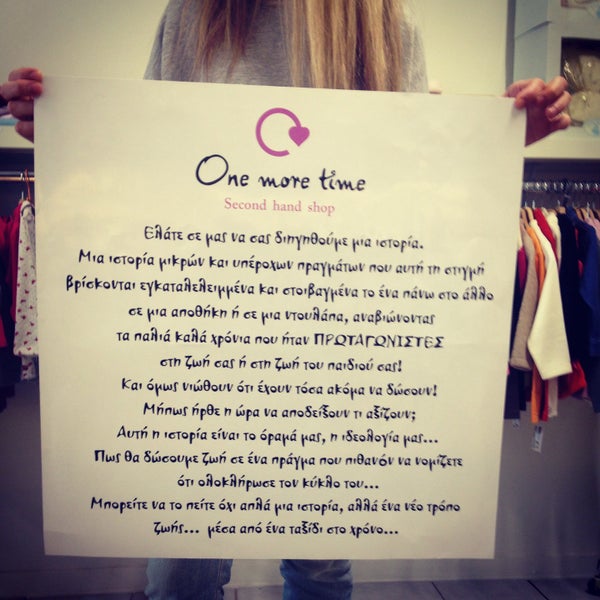 One more time
Second hand shop
Ελάτε σε μας να σας διηγηθούμε μια ιστορία.
Μια ιστορία μικρών και υπέροχων πραγμάτων που αυτή τη στιγμή
βρίσκονται εγκαταλελειμμένα και στοιβαγμένα το ένα πάνω στο άλλο
σε μια αποθήκη ή σε μια ντουλάπα, αναβιώνοντας
τα παλιά καλά χρόνια που ήταν ΠΡΩΤΑΓΩΝΙΣΤΕΣ
στη ζωή σας ή στη ζωή του παιδιού σας!
Και όμως νιώθουν ότι έχουν τόσα ακόμα να δώσουν!
Μήπως ήρθε η ώρα να αποδείξουν τι αξίζουν;
Αυτή η ιστορία είναι το όραμά μας, η ιδεολογία μας...
Πως θα δώσουμε ζωή σε ένα πράγμα που πιθανόν να νομίζετε
ότι ολοκλήρωσε τον κύκλο του...
Μπορείτε να το πείτε όχι απλά μια ιστορία, αλλά ένα νέο τρόπο
ζωής... μέσα από ένα ταξίδι στο χρόνο...